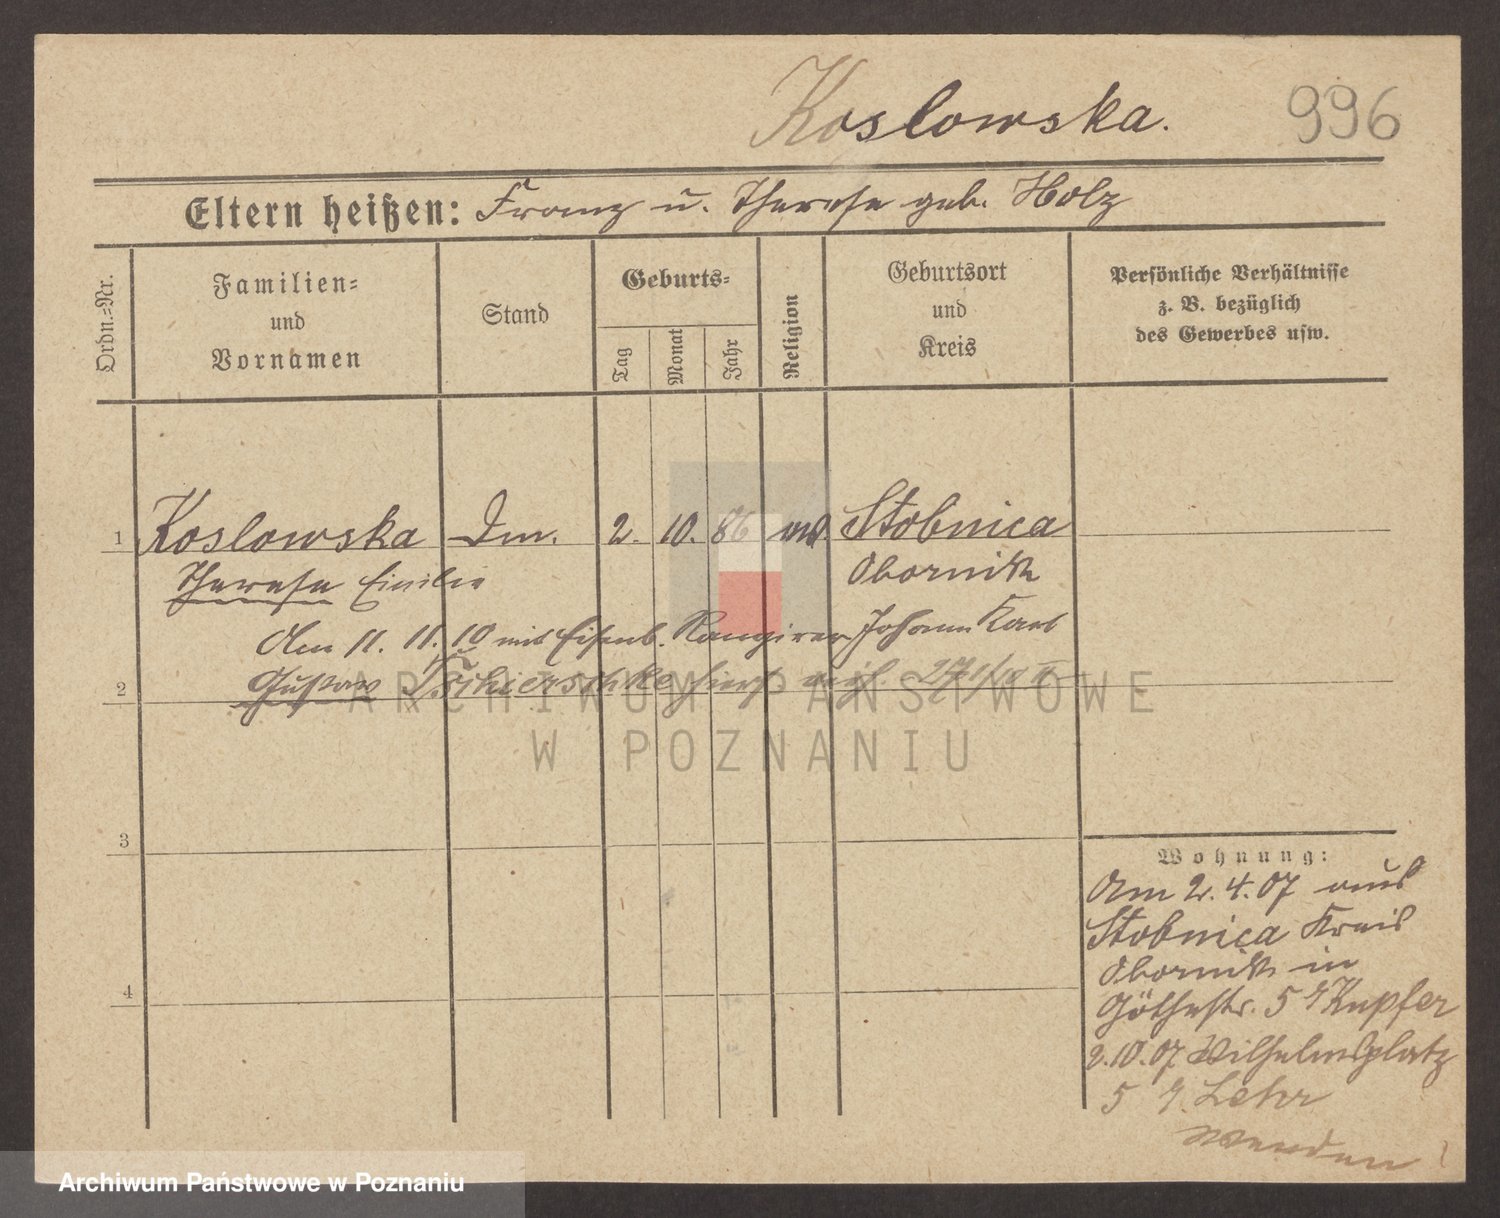 Koslowska.
996
Eltern heißen: Franz u. Therese geb. Holz
Ordn.=Nr.
Familien=
und
Vornamen
Stand
Geburts=
Tag
Monat
Jahr
Religion
Geburtsort
und
Kreis
Persönliche Verhältnisse
z. B. bezüglich
des Gewerbes usw.
1 Koslowska 2. 10. 86 Stobnica
Therese Emilie Obornik
Am 11. 11. 10 mit Eisenb. Rangirer Johann Karl
2 Gustav Tschierschke
ARCHIWUM PAŃSTWOWE
W POZNANIU
3
4
Wohnung:
Am 2. 4. 07 aus
Stobnica Kreis
Obornik in
Göthestr. 5 Kupfer
2.10.07 Wilhelmsplatz
5 Lehr
wenden
Archiwum Państwowe w Poznaniu